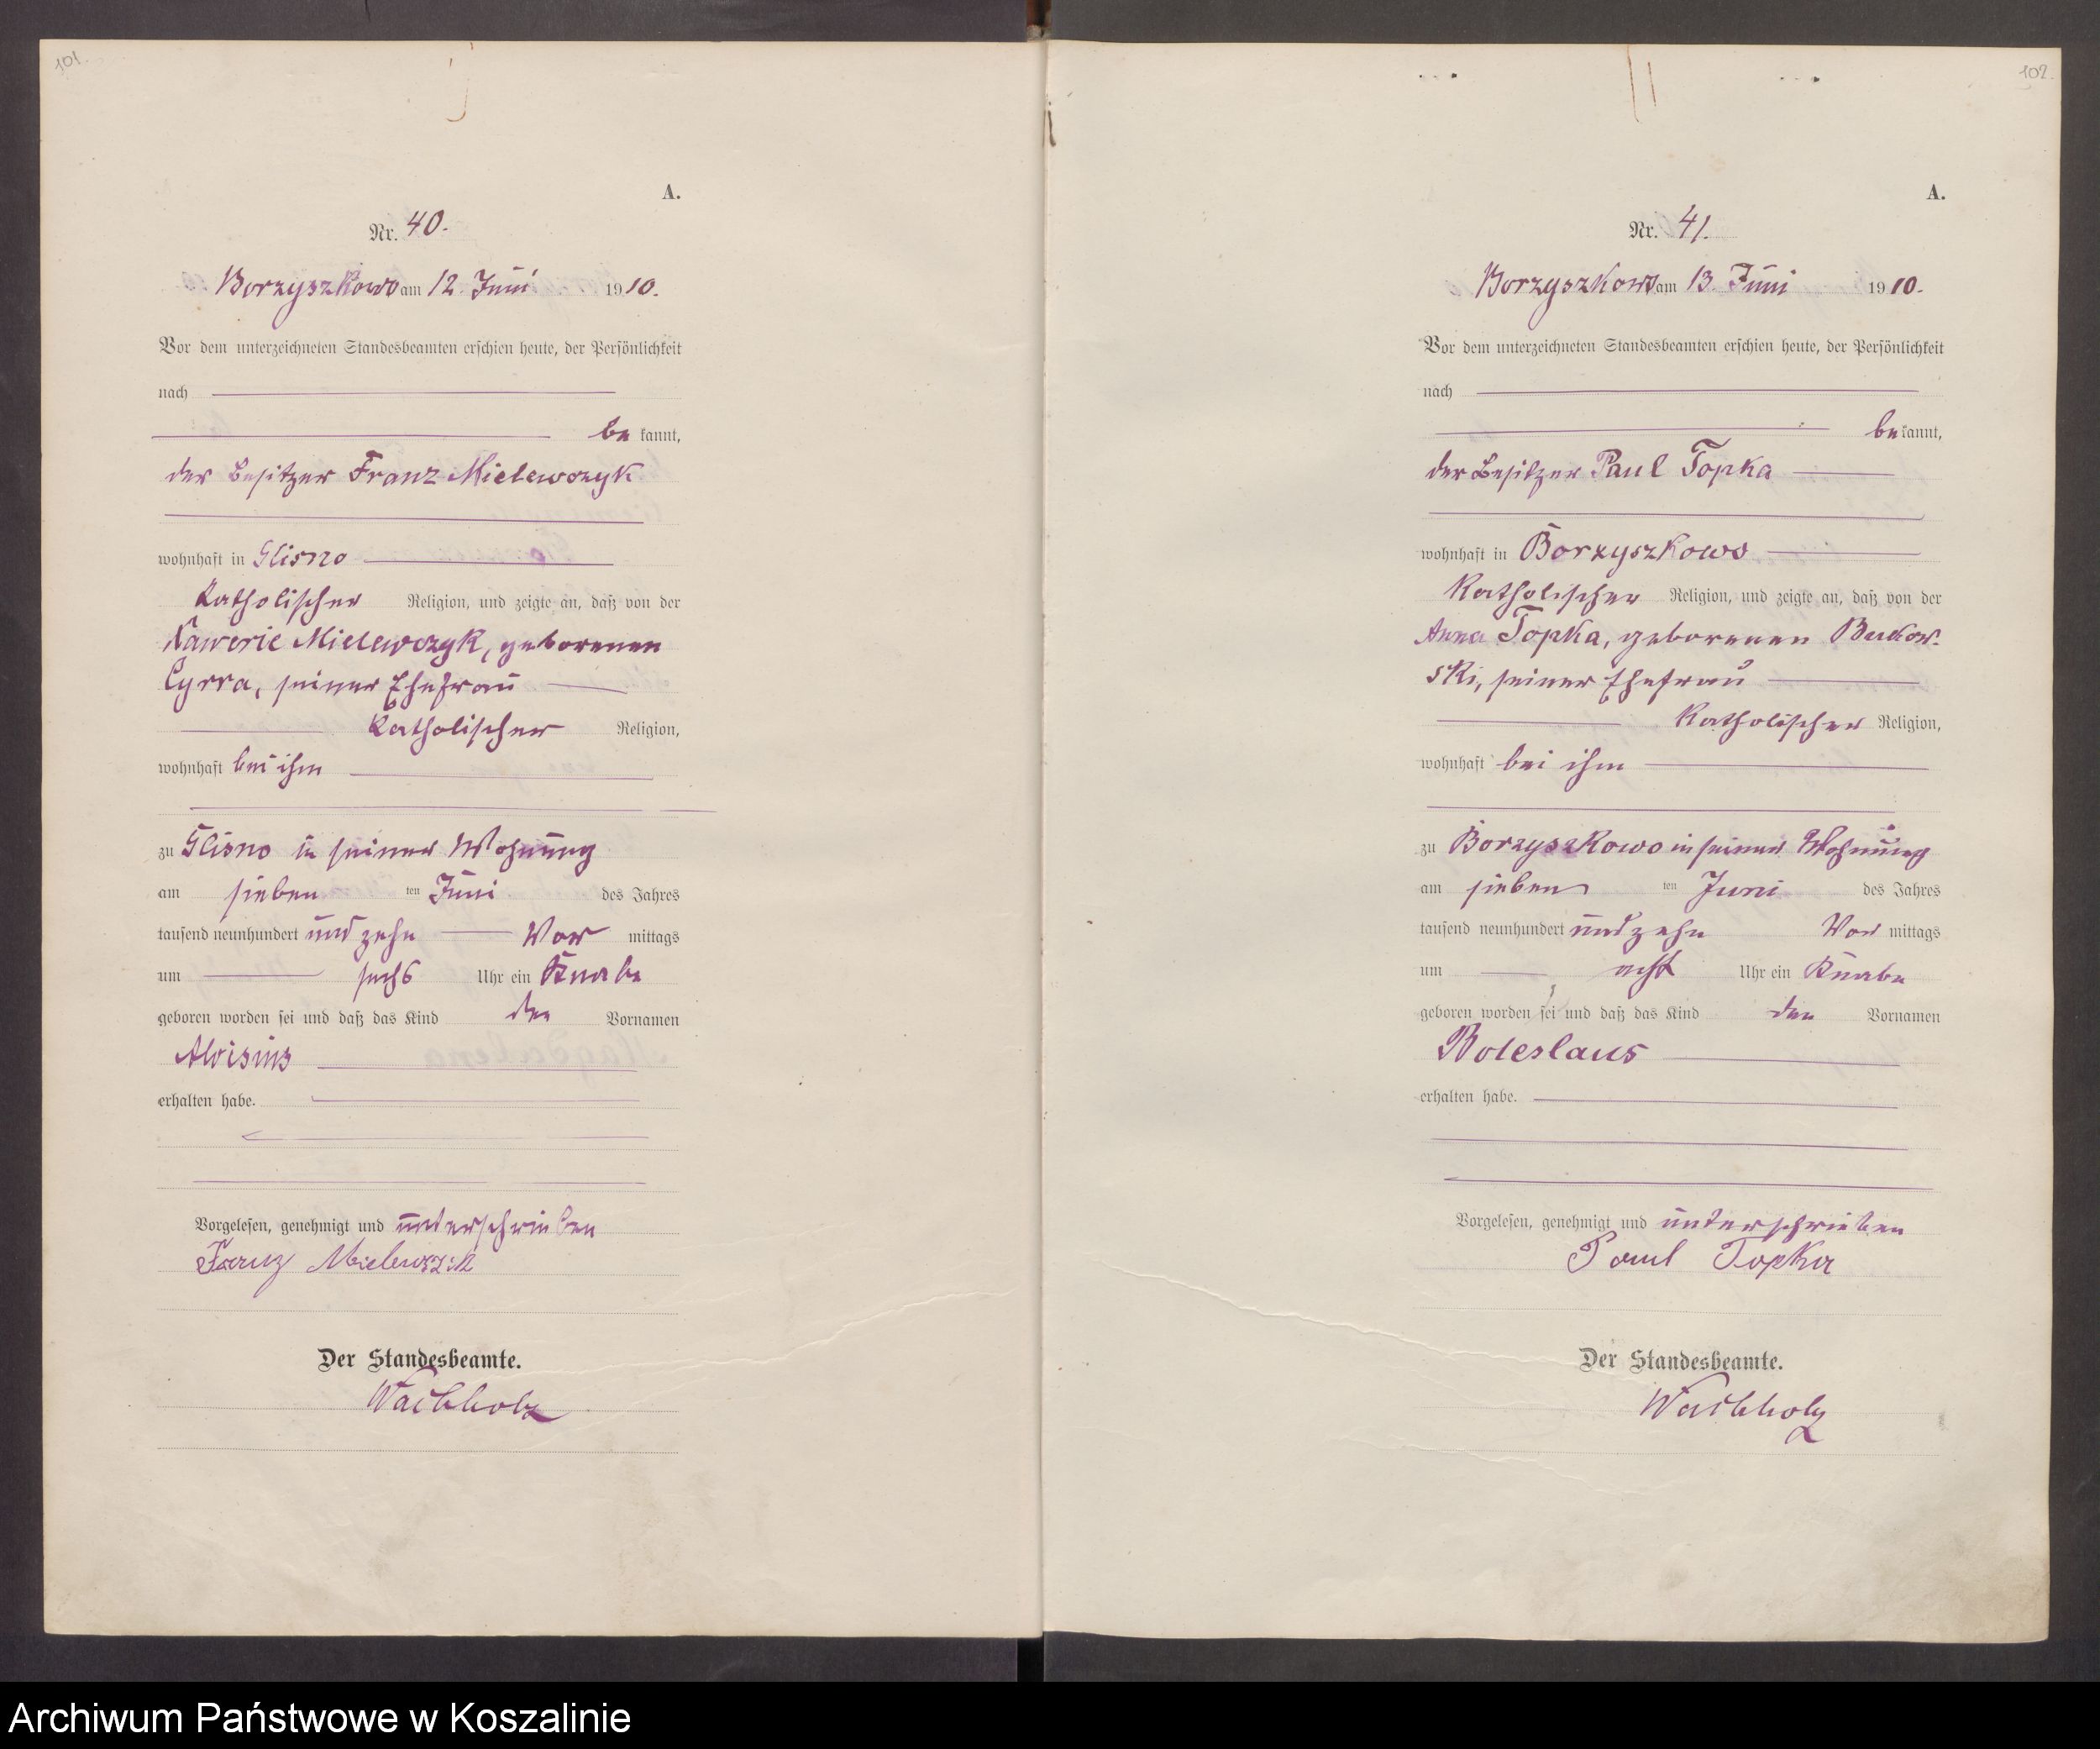 101.
A.
Nr. 40.
Borzyszkowo am 12. Juni 1910.
Vor dem unterzeichneten Standesbeamten erschien heute, der Persönlichkeit
nach
be kannt,
der Besitzer Franz Mielewczyk
wohnhaft in Glisno
Katholischer Religion, und zeigte an, daß von der
Xawerie Mielewczyk, geborenen
Cyrra, seiner Ehefrau
Katholischer Religion,
wohnhaft bei ihm
zu Glisno in seiner Wohnung
am sieben ten Juni des Jahres
tausend neunhundert und zehn Vor mittags
um sechs Uhr ein Knabe
geboren worden sei und daß das Kind den Vornamen
Aloisius
erhalten habe.
Vorgelesen, genehmigt und unterschrieben
Franz Mielewczik
Der Standesbeamte.
Wachholz
102.
A.
Nr. 41.
Borzyszkowo am 13. Juni 1910.
Vor dem unterzeichneten Standesbeamten erschien heute, der Persönlichkeit
nach
be kannt,
der Besitzer Paul Topka
wohnhaft in Borzyszkowo
Katholischer Religion, und zeigte an, daß von der
Anna Topka, geborenen Bukow-
ski, seiner Ehefrau
Katholischer Religion,
wohnhaft bei ihm
zu Borzyszkowo in seiner Wohnung
am sieben ten Juni des Jahres
tausend neunhundert und zehn Vor mittags
um acht Uhr ein Knabe
geboren worden sei und daß das Kind den Vornamen
Boleslaus
erhalten habe.
Vorgelesen, genehmigt und unterschrieben
Paul Topka
Der Standesbeamte.
Wachholz
Archiwum Państwowe w Koszalinie